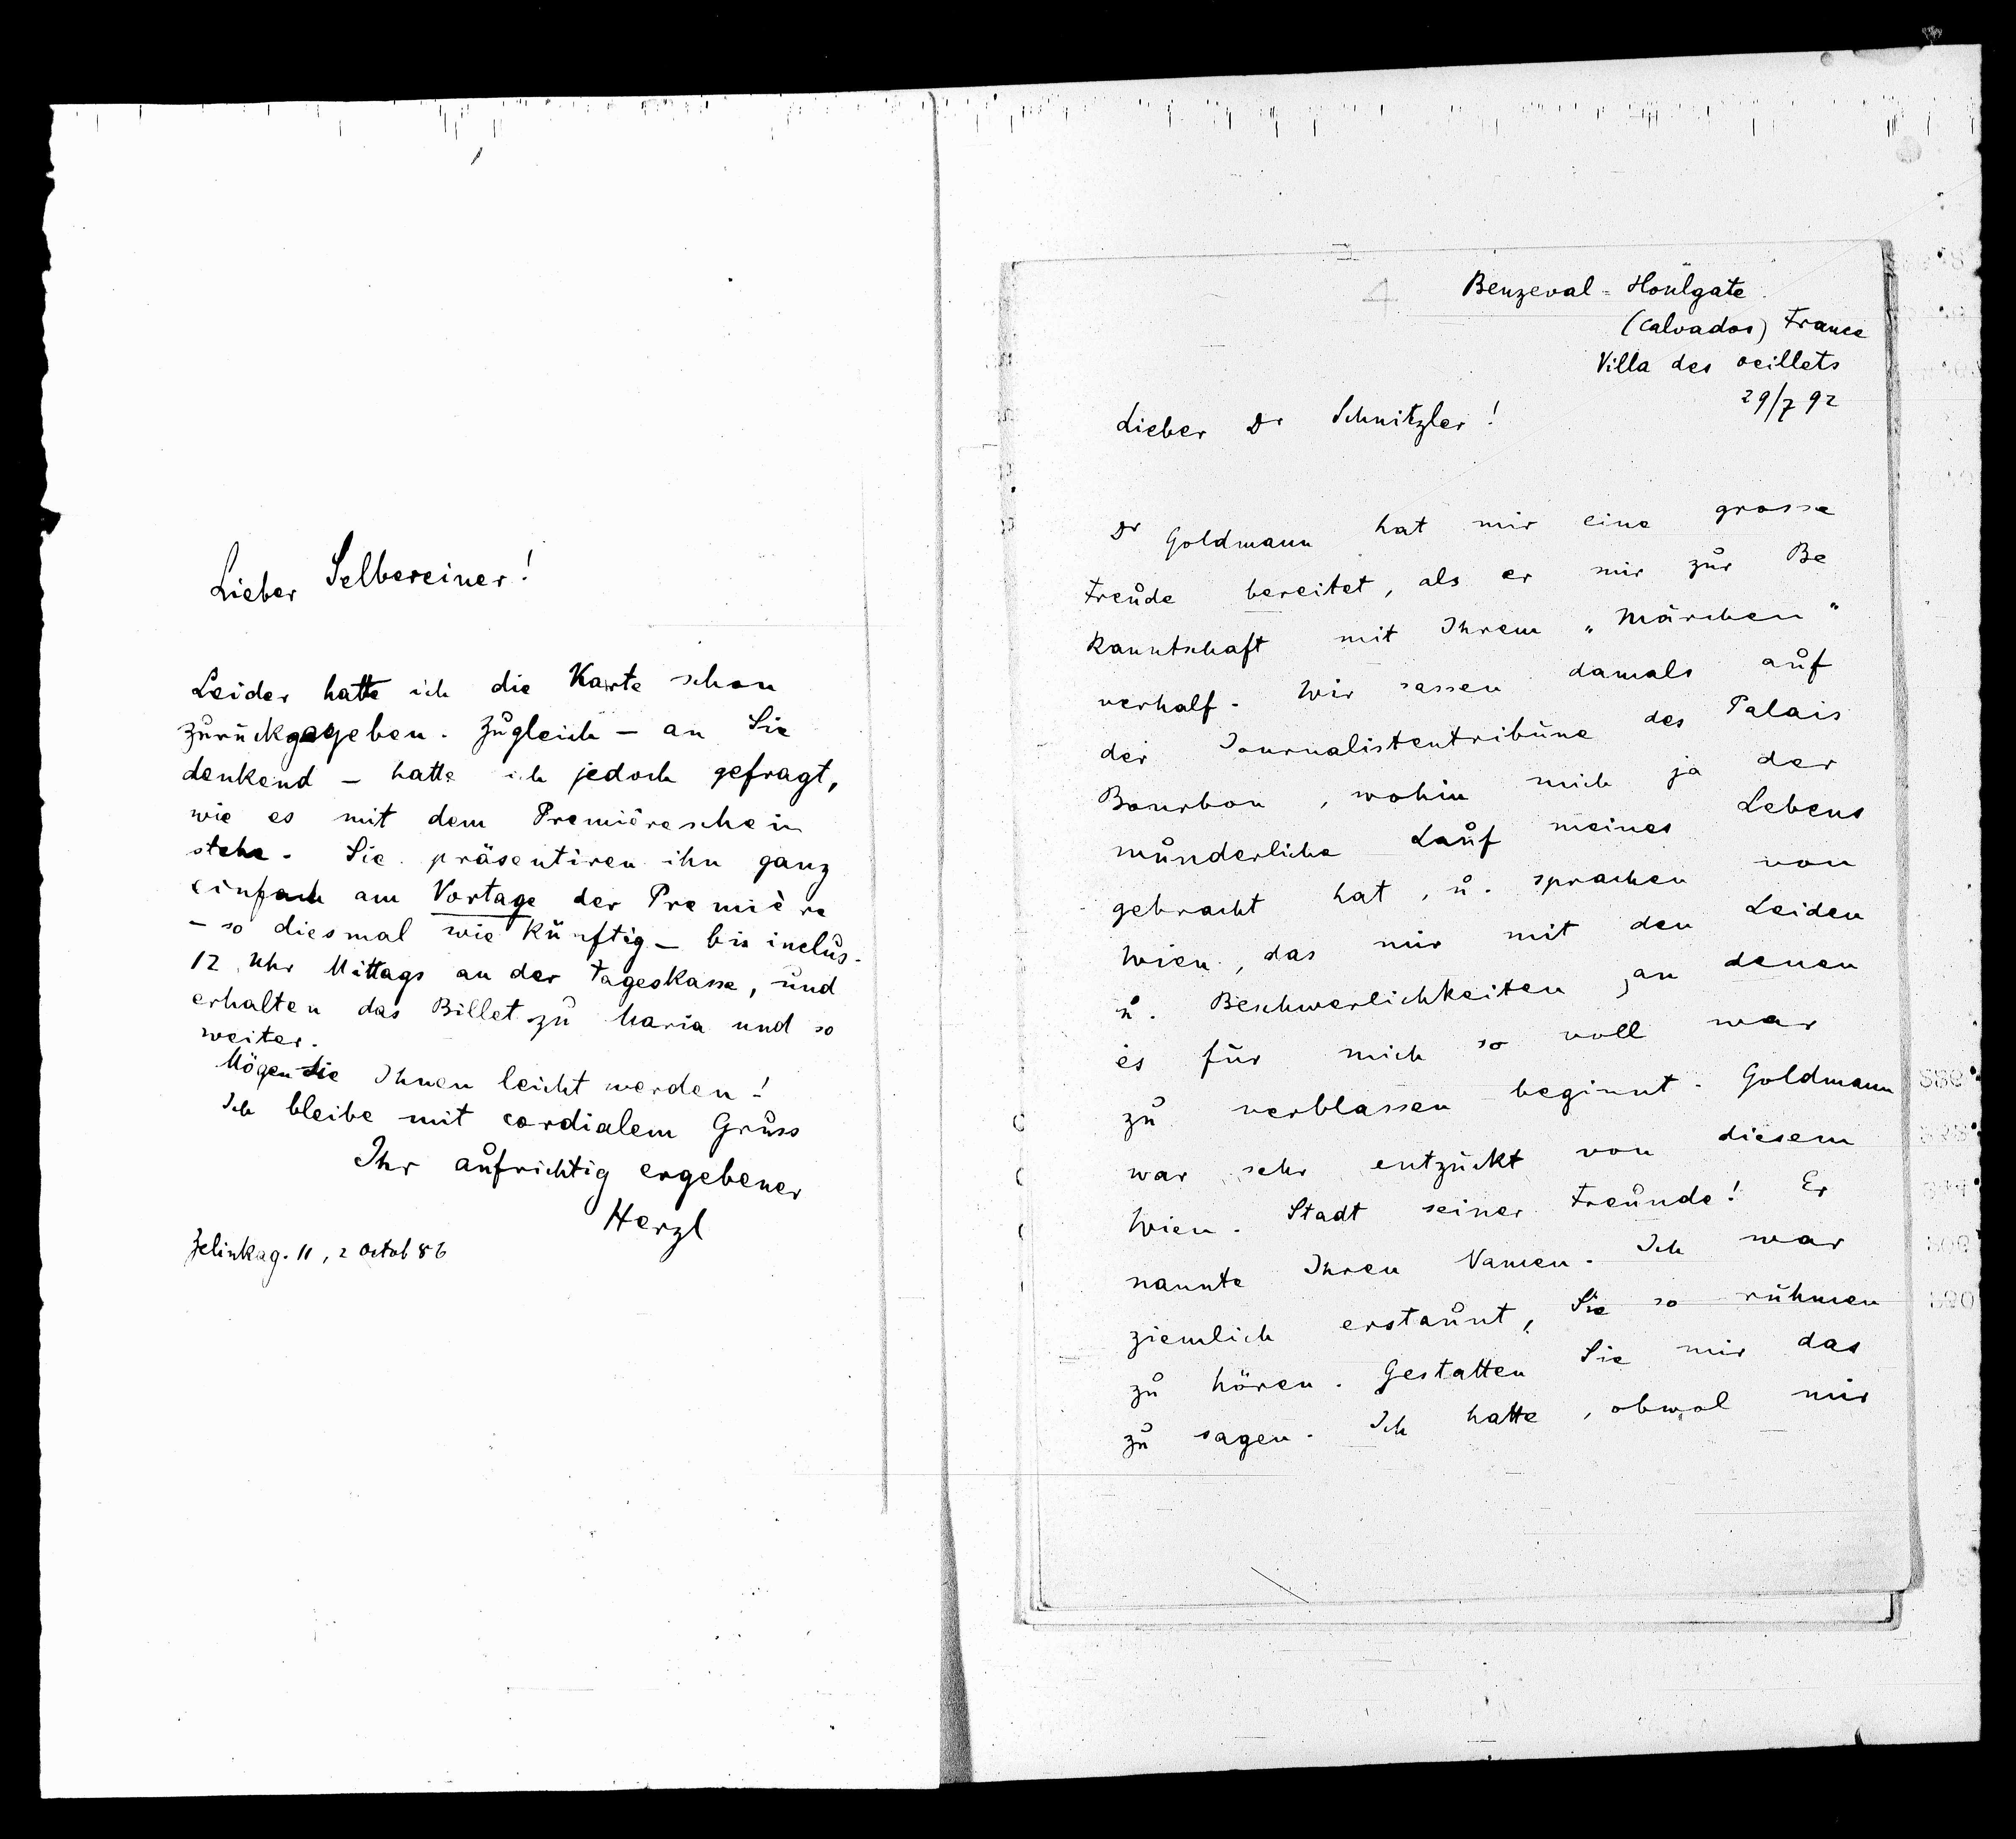 Lieber Selbereiner!
Leider hatte ich die Karte schon
zurückgegeben. Zugleich – an Sie
denkend – hatte ich jedoch gefragt,
wie es mit dem Premièreschein
stehe. Sie präsentiren ihn ganz
einfach am Vortage der Première
– so diesmal wie künftig – bis inclus.
12 Uhr Mittags an der Tageskasse, und
erhalten das Billet zu Maria und so
weiter.
Mögen sie Ihnen leicht werden!
Ich bleibe mit cordialem Gruss
Ihr aufrichtig ergebener
Herzl
Zelinkag. 11, 2 Octob 86
4
Benzeval-Houlgate
(Calvados) France
Villa des oeillets
29/7 92
Lieber Dr Schnitzler!
Dr Goldmann hat mir eine grosse
Freude bereitet, als er mir zur Be
kanntschaft mit Ihrem „Märchen"
verhalf. Wir sassen damals auf
der Journalistentribüne des Palais
Bourbon, wohin mich ja der
wunderliche Lauf meines Lebens
gebracht hat, u. sprachen von
Wien, das mir mit den Leiden
u. Beschwerlichkeiten, an denen
es für mich so voll war
zu verblassen beginnt. Goldmann
war sehr entzückt von diesem
Wien. Stadt seiner Freunde! Er
nannte Ihren Namen. Ich war
ziemlich erstaunt, Sie so rühmen
zu hören. Gestatten Sie mir das
zu sagen. Ich hatte, obwol mir